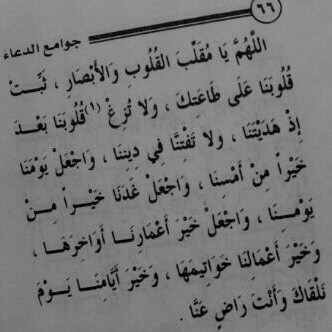 ٦٦
جوامع الدعاء
اللَّهُمَّ يَا مُقَلِّبَ القُلُوبِ وَالأَبْصَارِ ، ثَبِّتْ
قُلُوبَنَا عَلَى طَاعَتِكَ ، وَلَا تُزِغْ (١) قُلُوبَنَا بَعْدَ
إِذْ هَدَيْتَنَا ، وَلَا تَفْتِنَّا فِي دِينِنَا ، وَاجْعَلْ يَوْمَنَا
خَيْراً مِنْ أَمْسِنَا ، وَاجْعَلْ غَدَنَا خَيْراً مِنْ
يَوْمِنَا ، وَاجْعَلْ خَيْرَ أَعْمَارِنَا أَوَاخِرَهَا ،
وَخَيْرَ أَعْمَالِنَا خَوَاتِيمَهَا ، وَخَيْرَ أَيَّامِنَا يَوْمَ
نَلْقَاكَ وَأَنْتَ رَاضٍ عَنَّا .